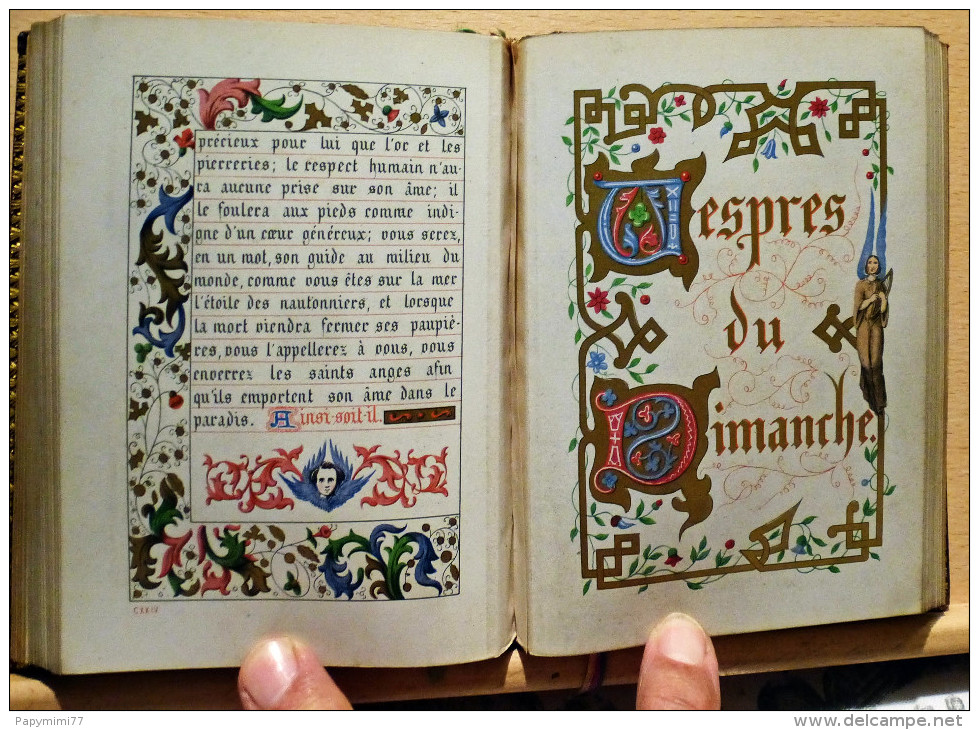 précieux pour lui que l'or et les
pierreries; le respect humain n'au-
ra aucune prise sur son âme; il
le foulera aux pieds comme indi-
gne d'un cœur généreux; vous serez,
en un mot, son guide au milieu du
monde, comme vous êtes sur la mer
l'étoile des nautonniers, et lorsque
la mort viendra fermer ses paupiè-
res, vous l'appellerez à vous, vous
enverrez les saints anges afin
qu'ils emportent son âme dans le
paradis. Ainsi-soit-il.
CXXIV
Vespres
du
Dimanche.
Papymimi77
www.delcampe.net